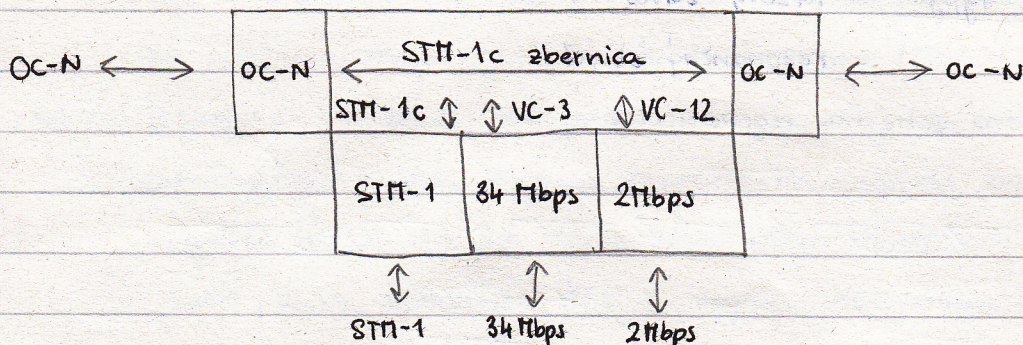 STM-1c zbernica
OC-N OC-N OC-N OC-N
STM-1c VC-3 VC-12
STM-1 34 Mbps 2Mbps
STM-1 34 Mbps 2Mbps